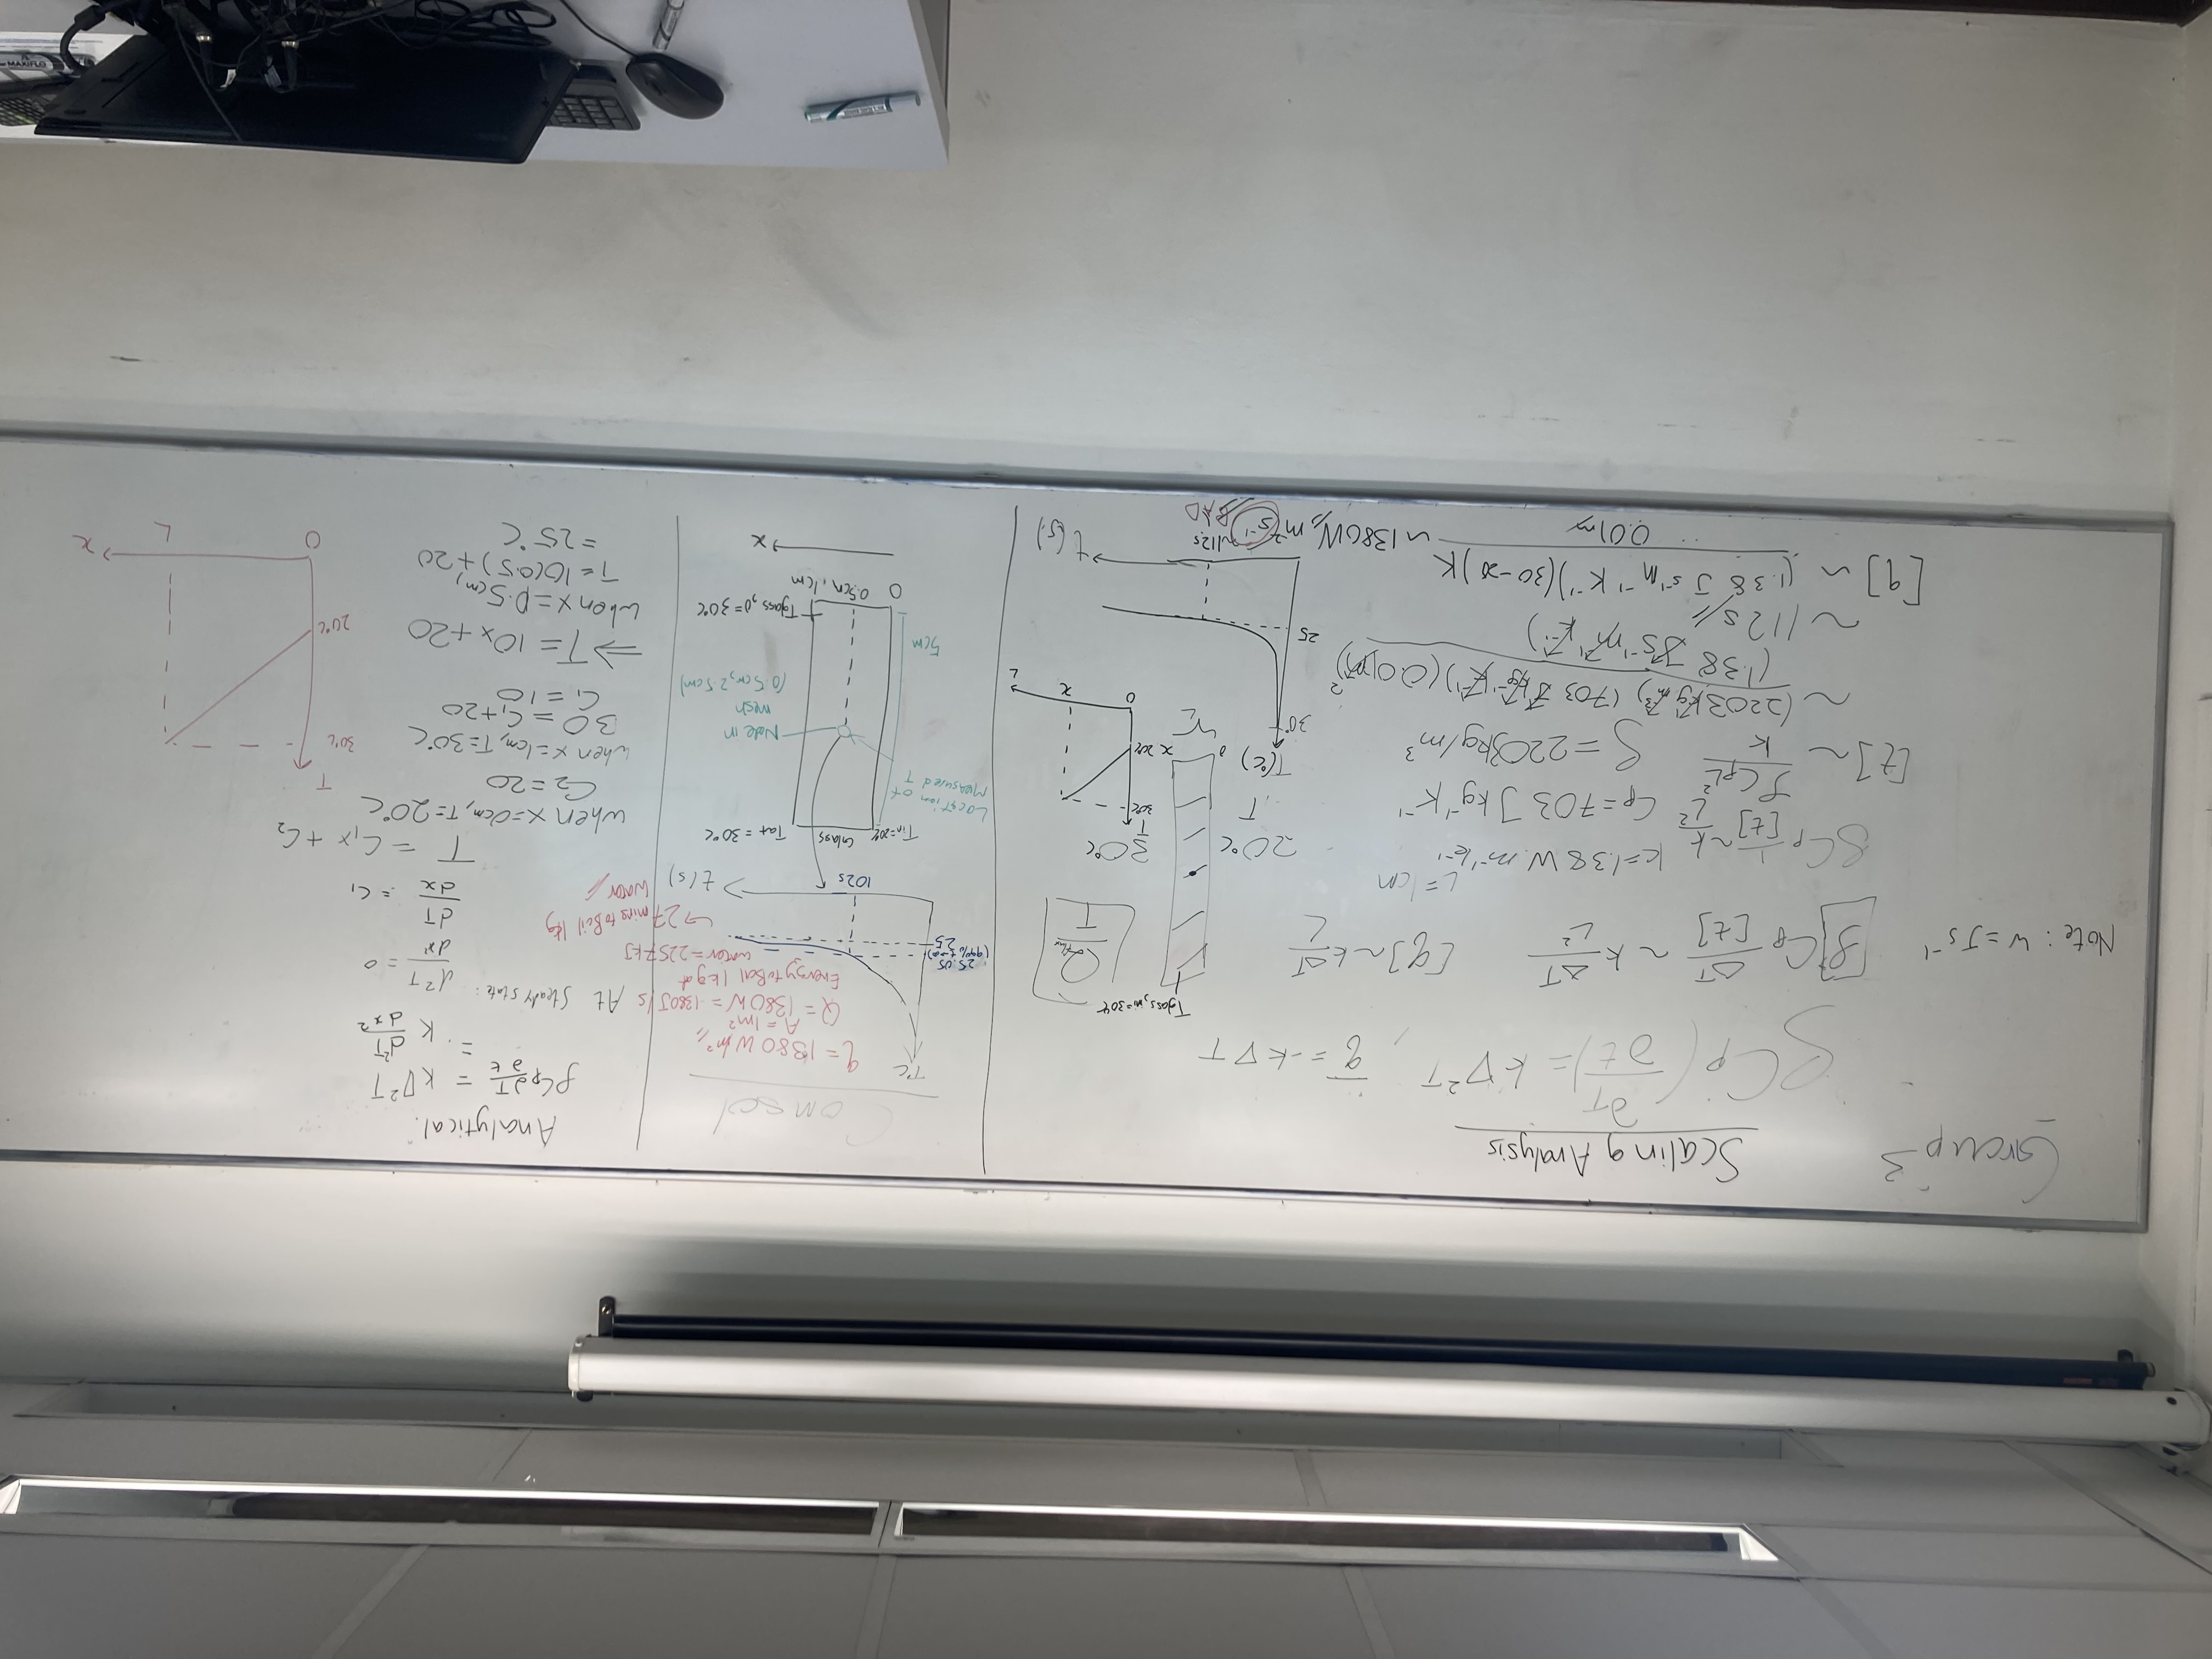 Group 3
Scaling Analysis
ρCp(∂T/∂t) = k∇²T , q = -k∇T
Note: W = Js⁻¹
[ρ]Cp ΔT/[t] ~ k ΔT/L²
[q] ~ k ΔT/L
L = 1cm
ρCp 1/[t] ~ k/L²
k = 1.38 W.m⁻¹k⁻¹
Cp = 703 Jkg⁻¹K⁻¹
[t] ~ ρCpL²/k
ρ = 2203kg/m³
~ (2203kg m⁻³)(703 J kg⁻¹ K⁻¹)(0.01m)²/(1.38 Js⁻¹m⁻¹K⁻¹)
~ 112s
[q] ~ (1.38 J s⁻¹m⁻¹K⁻¹)(30-20)K/0.01m ~ 1380W, m⁻² s⁻¹ BAD
Tglass,ini=30℃
20℃
T
30℃
0
x
L
T
30℃
20℃
0
x
L
T(℃)
30°
25
~112s
t(s)
Comsol
T℃
q = 1380 Wm²
A = 1m²
Q = 1380W = 1380J/s
Energy to Boil 1kg of
water = 2257kJ
→ 27 mins to Boil 1kg
water
25.05
25
102s
t(s)
Tin=20℃
Glass
Tout = 30℃
Location of
Measured T
Node in
mesh
(0.5cm, 2.5cm)
5cm
Tglass,0 = 30℃
0
0.5cm, 1cm
x
Analytical:
ρCp ∂T/∂t = k∇²T
= k d²T/dx²
At steady state:
d²T/dx² = 0
dT/dx = C₁
T = C₁x + C₂
when x=0cm, T=20℃
C₂ = 20
when x=1cm, T=30℃
30 = C₁+20
C₁ = 10
⇒ T = 10x+20
when x=0.5cm,
T = 10(0.5)+20
= 25℃
T
30℃
20℃
0
L
x